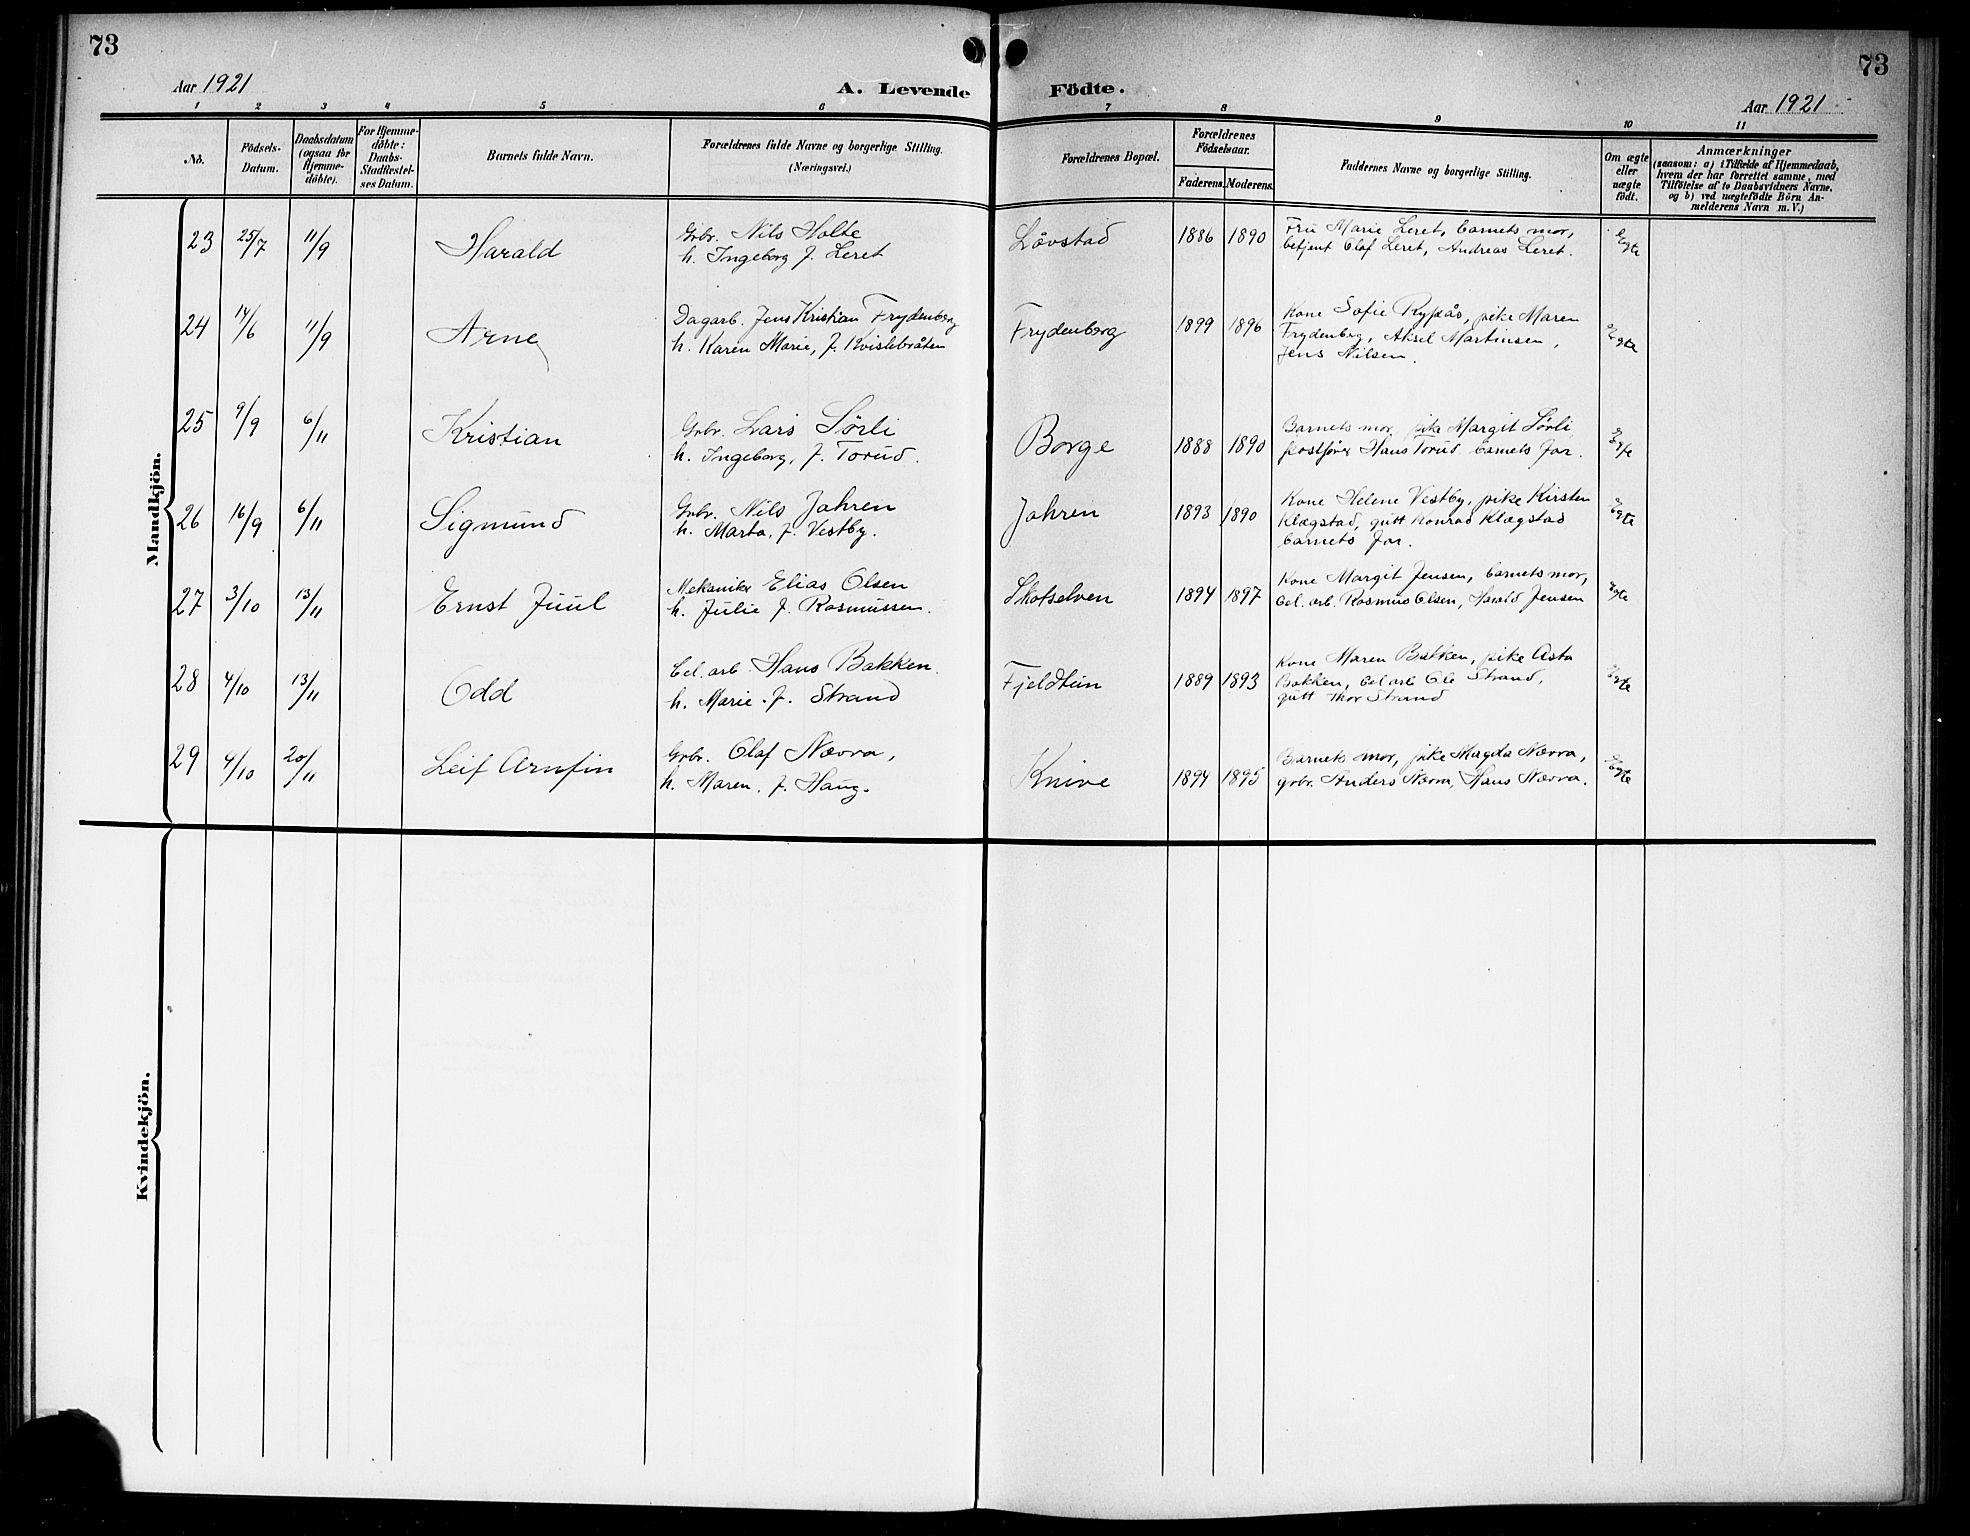 73
73
Aar 1921
A. Levende Födte.
Aar 1921
1 2 3 4 5 6 7 8 9 10 11
No.
Födsels-
Datum.
Daabsdatum
(ogsaa for
Hjemme-
döbte).
For Hjemme-
döbte:
Daabs-
Stadfæstel-
ses Datum.
Barnets fulde Navn.
Forældrenes fulde Navne og borgerlige Stilling.
(Næringsvei.)
Forældrenes Bopæl.
Forældrenes
Födselsaar.
Faderens. Moderens.
Faddernes Navne og borgerlige Stilling.
Om ægte
eller
uægte
födt.
Anmærkninger
(saasom: a) i Tilfælde af Hjemmedaab,
hvem der har forrettet samme, med
Tilföielse af to Daabsvidners Navne,
og b) ved uægtefödte Börn An-
melderens Navn m. V.)
Mandkjön.
23 25/7 11/9 Harald
Grbr. Nils Holte
h. Ingeborg f. Leret
Lövstad 1886 1890
Fru Marie Leret, barnets mor,
betjent Olaf Leret, Andreas Leret.
Egte
24 14/6 11/9 Arne
Dagarb. Jens Kristian Frydenberg
h. Karen Marie, f. Kvislebråten
Frydenberg 1899 1896
Kone Sofie Rypås, pike Maren
Frydenberg, Aksel Martinsen,
Jens Nilsen.
Egte
25 9/9 6/11 Kristian
Grbr. Lars Sörli
h. Ingeborg, f. Torud.
Borge 1888 1890
Barnets mor, pike Margit Sörli,
postförer Hans Torud barnets far.
Egte
26 16/9 6/11 Sigmund
Grbr. Nils Jahren
h. Marta, f. Vestby.
Jahren 1893 1890
Kone Helene Vestby, pike Kirsten
Klægstad, gutt Konrad Klægstad
barnets far.
Egte
27 3/10 13/11 Ernst Juul
Mekaniker Elias Olsen
h. Julie f. Rasmussen.
Skotselven 1894 1897
Kone Margit Jensen, barnets mor,
Cel. arb. Rasmus Olsen, Harald Jensen
Egte
28 4/10 13/11 Odd
Cel. arb. Hans Bakken
h. Marie. f. Strand
Fjeldtun 1889 1893
Kone Maren Bakken, pike Asta
Bakken, Cel arb Ole Strand,
gutt Thor Strand
Egte
29 4/10 20/11 Leif Arnfin
Grbr. Olaf Nævra,
h. Maren. f. Haug.
Knive 1894 1895
Barnets mor, pike Magda Nævra,
grbr. Anders Nævra, Hans Nævra.
Egte
Kvindekjön.